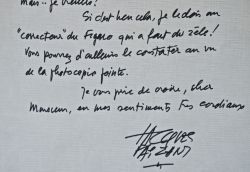 mais.. je vieillis!
Si c'est bien cela, je le dois au
"correcteur" du Figaro qui a fait du zèle!
Vous pourrez d'ailleurs le constater au vu
de la photocopie jointe.
Je vous prie de croire, cher
Monsieur, en mes sentiments très cordiaux
JACQUES
FAIZANT